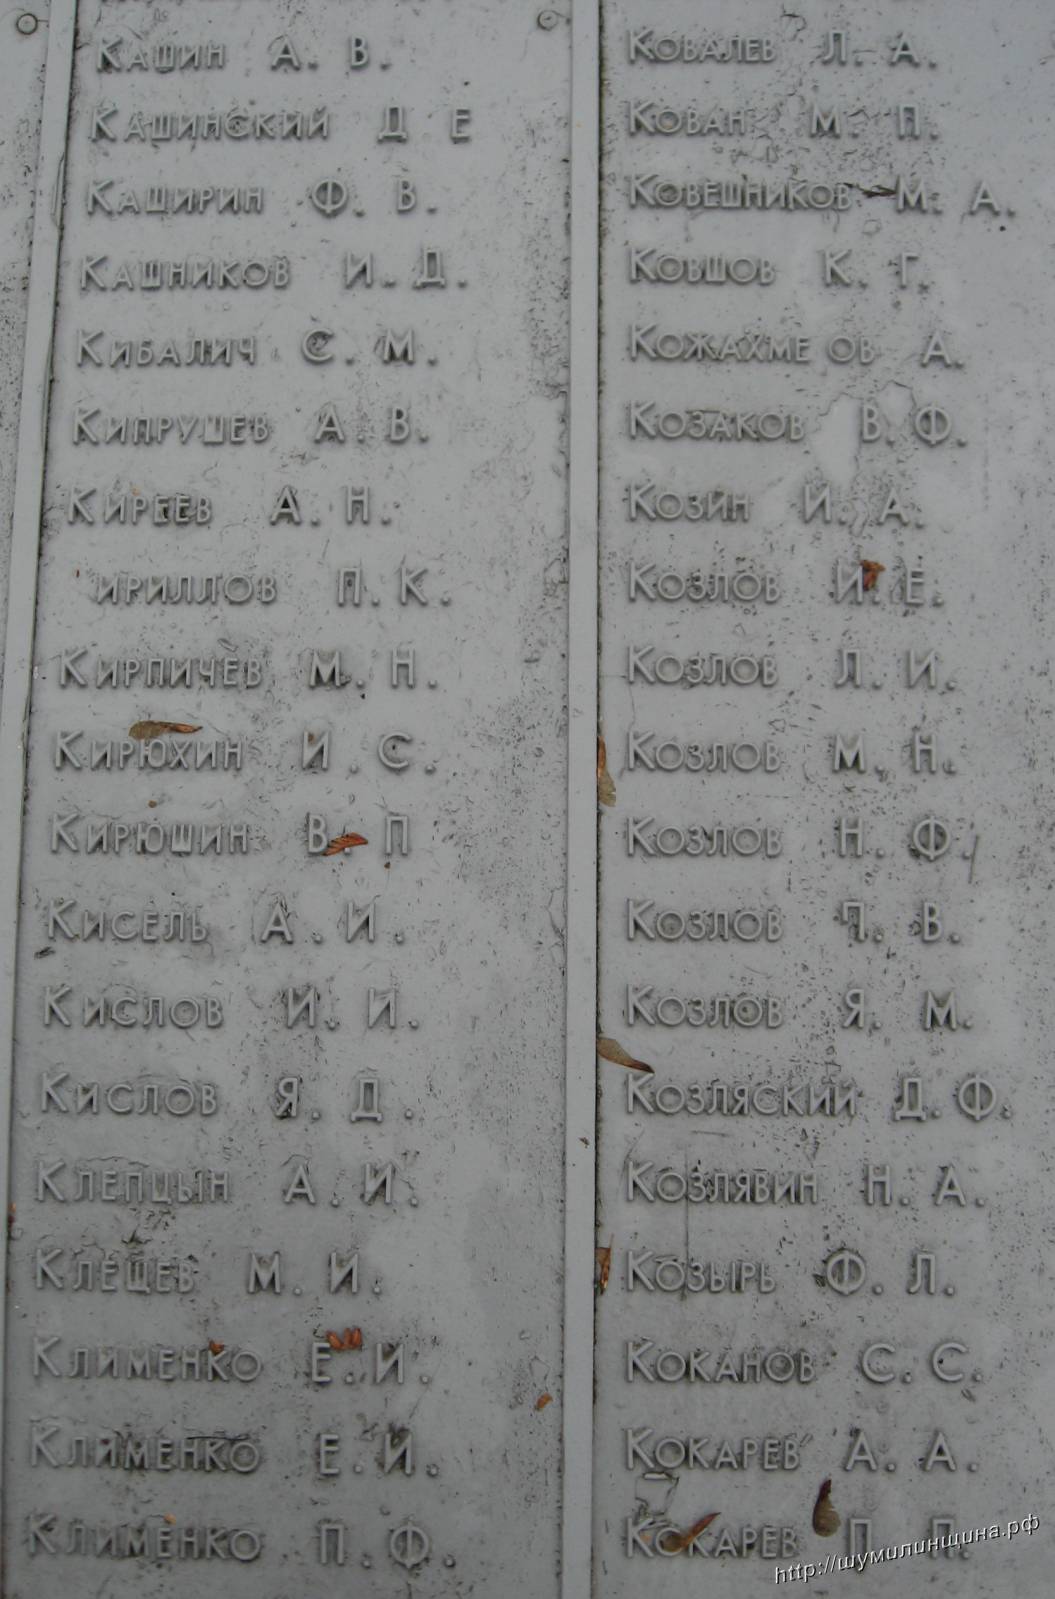 Кашин А. В.
Кашинский Д Е
Каширин Ф. В.
Кашников И. Д.
Кибалич С. М.
Кипрушев А. В.
Киреев А. Н.
ириллов П. К.
Кирпичев М. Н.
Кирюхин И. С.
Кирюшин В. П
Кисель А. И.
Кислов И. И.
Кислов Я. Д.
Клепцын А. И.
Клещев М. И.
Клименко Е. И.
Клименко Е. И.
Клименко П. Ф.
Ковалев Л. А.
Кован М. П.
Ковешников М. А.
Ковшов К. Г.
Кожахме ов А.
Козаков В. Ф.
Козин И. А.
Козлов И. Е.
Козлов Л. И.
Козлов М. Н.
Козлов Н. Ф.
Козлов П. В.
Козлов Я. М.
Козляский Д. Ф.
Козлявин Н. А.
Козырь Ф. Л.
Коканов С. С.
Кокарев А. А.
Кокарев П. П.
http://шумилинщина.рф